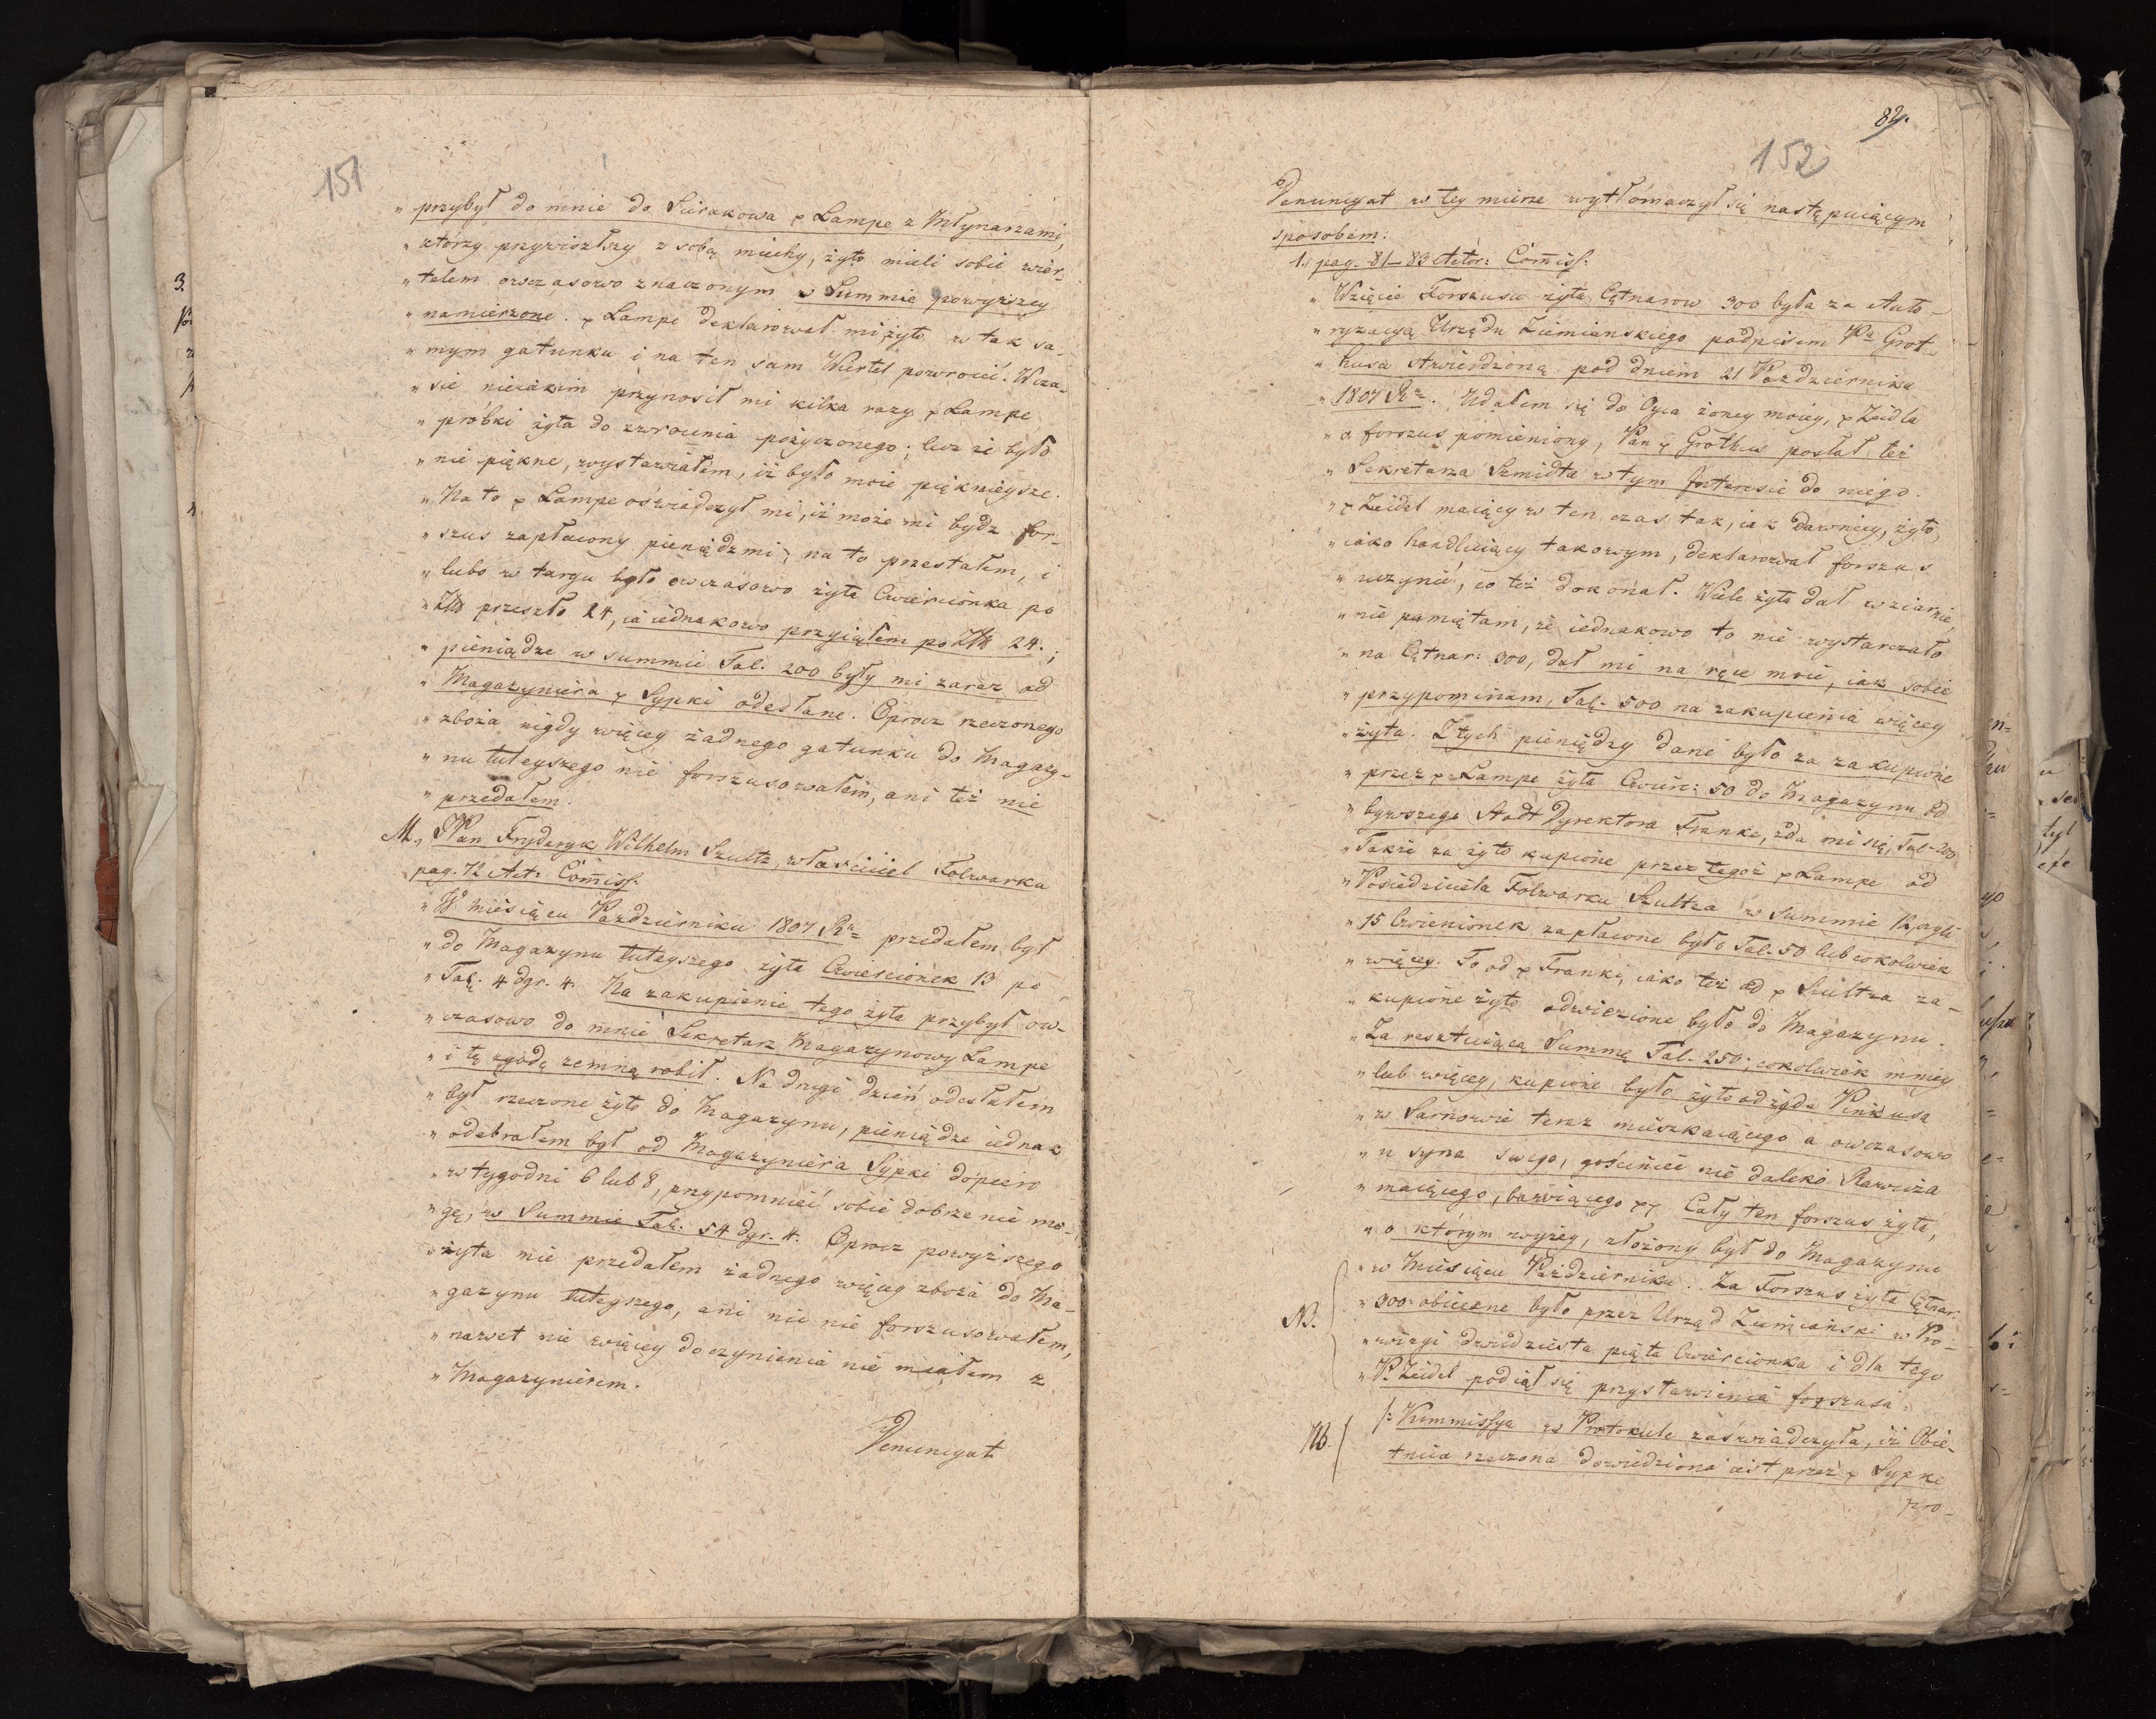 151
„ przybył do mnie do Sierakowa p Lampe z Młynarzami,
„ którzy przywiozłszy z sobą miechy, żyto mieli sobie wier-
„ telem owczasowo znaczonym w Summie powyższey
„ namierzone. p Lampe deklarował mi żyto w tak sa-
„ mym gatunku i na ten sam Wiertel powrocić. W cza-
„ sie nieiakim przynosił mi kilka razy p Lampe
„ probki żyta do zwrocenia pożyczonego; lecz że było
„ nie piękne, wystawiałem, iż było moie pięknieysze.
„ Na to p Lampe oświadczył mi, iż może mi bydz for-
„ szus zapłacony pieniądzmi; na to przestałem, i
„ lubo w targu było owczasowo żyta Cwiercionka po
„ Złł przeszło 24, ia iednakowo przyiąłem po Złł 24.;
„ pieniądze w summie Tal. 200 były mi zaraz od
„ Magazyniera p Sypki odesłane. Oprocz rzeczonego
„ zboża nigdy więcey żadnego gatunku do Magazy-
„ nu tuteyszego nie forszusowałem, ani też nie
„ przedałem.
M., Pan Fryderyk Wilhelm Szultz, właściciel Folwarku
pag. 72 Act: Com̄iss.
„ W miesiącu Pazdzierniku 1807 Ru= przedałem był
„ do Magazynu tuteyszego żyta Cwiercionek 13 po
„ Tal. 4 dgr. 4. Na zakupienie tego żyta przybył ow-
„ czasowo do mnie Sekretarz Magazynowy Lampe
„ i tę zgodę zemną robił. Na drugi dzień odesłałem
„ był rzeczone żyto do Magazynu, pieniądze iednak
„ odebrałem był od Magazyniera Sypki dopiero
„ w tygodni 6 lub 8, przypomnieć sobie dobrze nie mo-
„ gę, w Summie Tal. 54 dgr. 4. Oprocz powyższego
„ żyta nie przedałem żadnego więcey zboża do Ma-
„ gazynu tuteyszego, ani nic nie forszusowałem,
„ nawet nic więcey do czynienia nie miałem z
„ Magazynierem.
Denuncyat
82.
152
Denuncyat w tey mierze wytłómaczył się następuiącym
sposobem:
1. pag. 81–83 Actor: Com̄iss:
„ Wzięcie Forszusu żyta Cętnarow 300 była za Auto-
„ ryzacyą Urzędu Ziemianskiego podpisem Pa Grot-
„ husa stwierdzoną pod dniem 21 Pazdziernika
„ 1807 Ru=. Udałem się do Oyca żoney moiey, p Zeidla
„ o forszus pomieniony, Pan p Grothus posłał też
„ Sekretarza Szmidta w tym Interesie do niego.
„ p Zeidel maiący w ten czas tak, iak dawniey, żyto,
„ iako handluiący takowym, deklarował forszus
„ uczynić, co też dokonał. Wiele żyta dał w ziarnie,
„ nie pamiętam, że iednakowo to nie wystarczało
„ na Cętnar: 300, dał mi na ręce moie, iak sobie
„ przypominam, Tal. 500 na zakupienia więcey
„ żyta. Z tych pieniędzy dane było za zakupione
„ przez p Lampe żyta Cwierc: 50 do Magazynu od
„ bywszego Stadt Dyrektora Franke, zda mi się, Tal. 200
„ Także za żyto kupione przez tegoż p Lampe od
„ Posiedziciela Folwarku Szultza w Summie 12, czyli
„ 15 Cwiercionek zapłacone było Tal. 50 lub cokolwiek
„ więcey. To od p Franki, iako też od p Szultza za-
„ kupione żyto odwiezione było do Magazynu.
„ Za resztuiącą Summę Tal. 250; cokolwiek mniey
„ lub więcey, kupione było żyto od żyda Pinkusa
„ w Sarnowie teraz mieszkaiącego a owczasowo
„ u syna swego, gościniec nie daleko Rawicza
„ maiącego, bawiącego Cały ten forszus żyta,
„ o którym wyżey, złożony był do Magazynu
„ w Miesiącu Październiku. Za Forszus żyta Cętnar:
NB.
„ 300 obiecane było przez Urząd Ziemiański w Pro-
„ wizyi dwudziesta piąta Cwiercionka i dla tego
„ P. Zeidel podiął się przystawienia forszusa.
NB.
/: Kommissya w Protokule zaświadczyła, iż Obie-
tnica rzeczona dowiedziona iest przez p Sypke
pro-